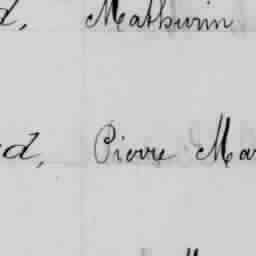 d, Mathurin
d, Pierre Mar